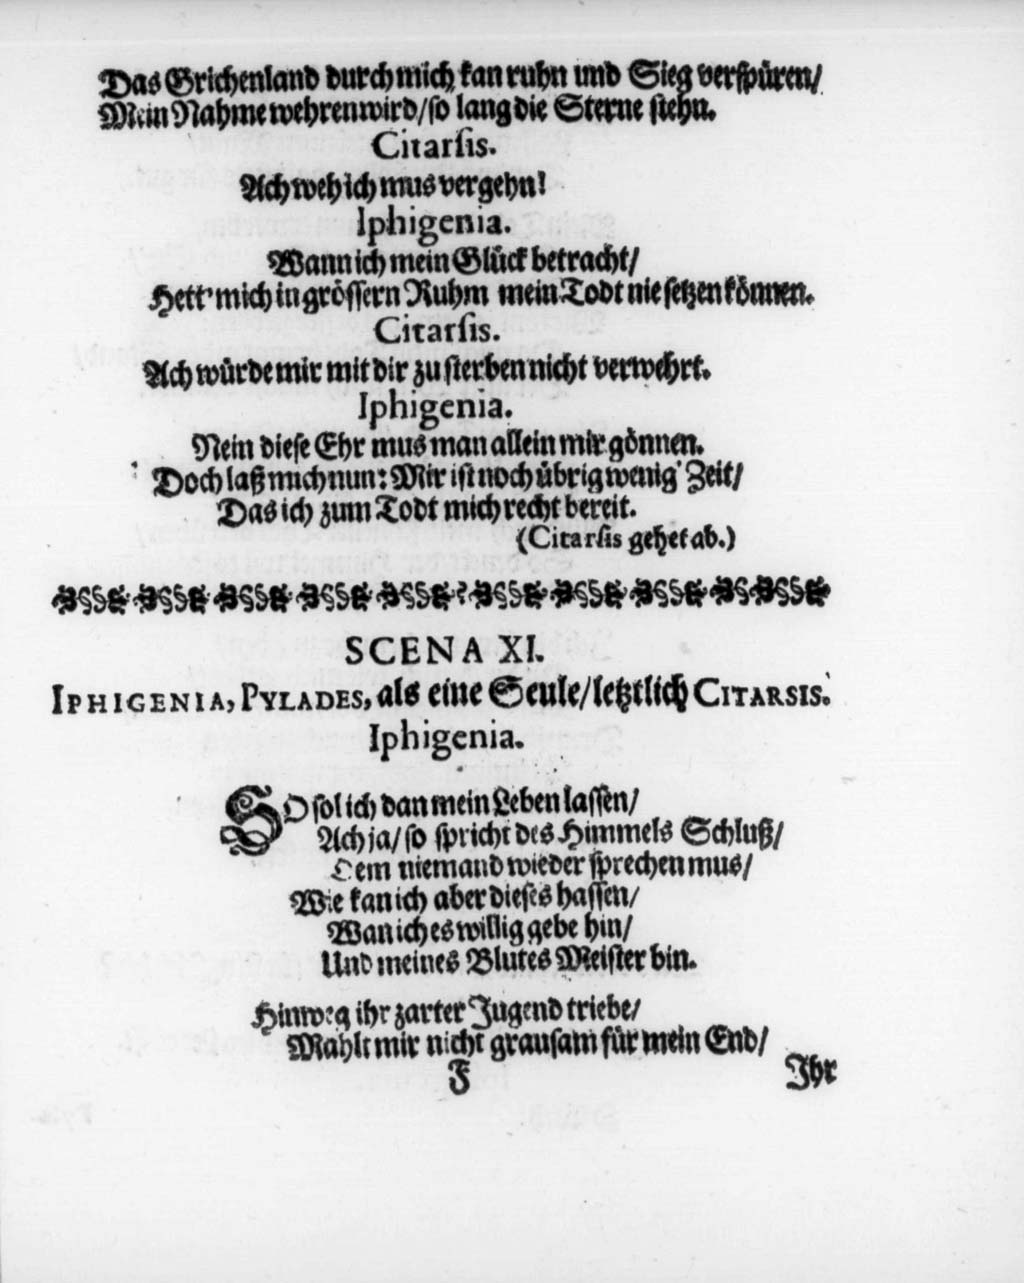 Das Grichenland durch mich kan ruhn und Sieg verspüren/
Mein Nahme wehren wird/so lang die Sterne stehn.
Citarsis.
Ach weh ich mus vergehn!
Iphigenia.
Wann ich mein Glück betracht/
Hett' mich in grössern Ruhm mein Todt nie setzen können.
Citarsis.
Ach würde mir mit dir zu sterben nicht verwehrt.
Iphigenia.
Nein diese Ehr mus man allein mir gönnen.
Doch laß mich nun: Mir ist noch übrig wenig Zeit/
Das ich zum Todt mich recht bereit.
(Citarsis gehet ab.)
SCENA XI.
IPHIGENIA, PYLADES, als eine Seule/letztlich CITARSIS.
Iphigenia.
SO sol ich dan mein Leben lassen/
Ach ja/so spricht des Himmels Schluß/
Dem niemand wieder sprechen mus/
Wie kan ich aber dieses hassen/
Wan ich es willig gebe hin/
Und meines Blutes Meister bin.
Hinweg ihr zarter Jugend triebe/
Mahlt mir nicht grausam für mein End/
F
Ihr